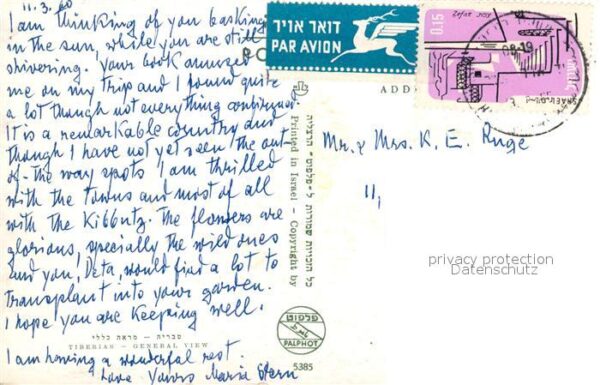 11.3.60
I am thinking of you basking
in the sun, while you are still
shivering. Your book amused
me on my trip and I found quite
a lot though not everything confirmed.
It is a remarkable country and
though I have not yet seen the out
of-the way spots I am thrilled
with the towns and most of all
with the Kibbutz. The flowers are
glorious, specially the wild ones
and you, Deta, would find a lot to
transplant into your garden.
I hope you are keeping well.
I am having a wonderful rest.
Love Yours Maria Stern
טבריה - מראה כללי
TIBERIAN - GENERAL VIEW
דואר אויר
PAR AVION
0.15
Zefat צפת
ISRAEL
ADD
Mr. & Mrs. K. E. Ruge
11,
Printed in Israel - Copyright by
כל הזכויות שמורות ל"פלפוט" הרצליה
פלפוט
PALPHOT
5385
privacy protection
Datenschutz